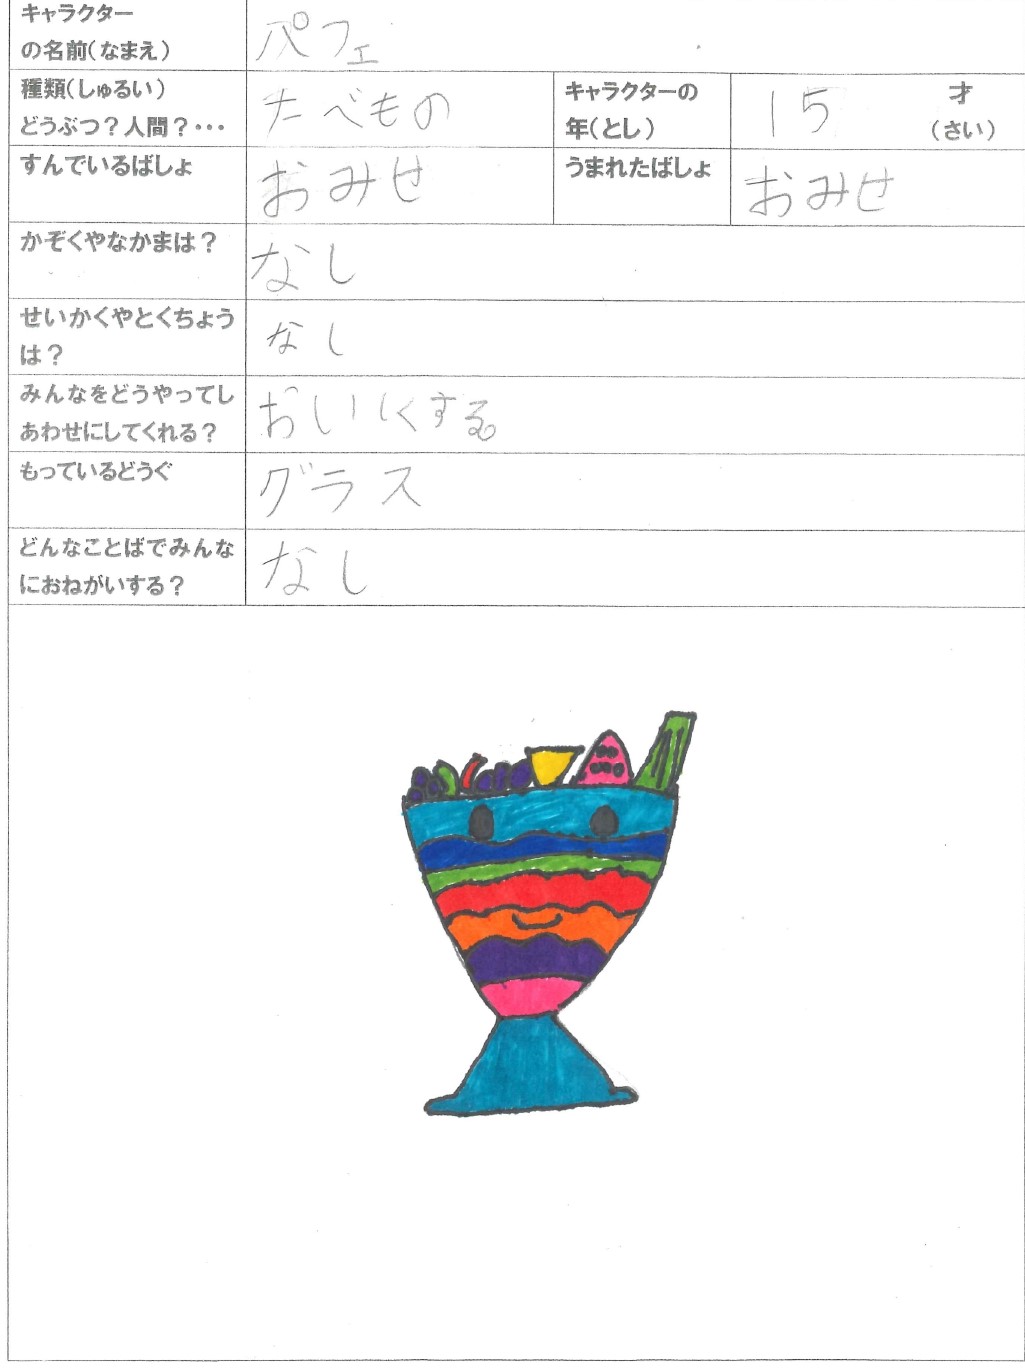 キャラクター
の名前(なまえ)
パフェ
種類(しゅるい)
どうぶつ?人間?・・・
たべもの
キャラクターの
年(とし)
15
才
(さい)
すんでいるばしょ
おみせ
うまれたばしょ
おみせ
かぞくやなかまは?
なし
せいかくやとくちょう
は?
なし
みんなをどうやってし
あわせにしてくれる?
おいしくする
もっているどうぐ
グラス
どんなことばでみんな
におねがいする?
なし